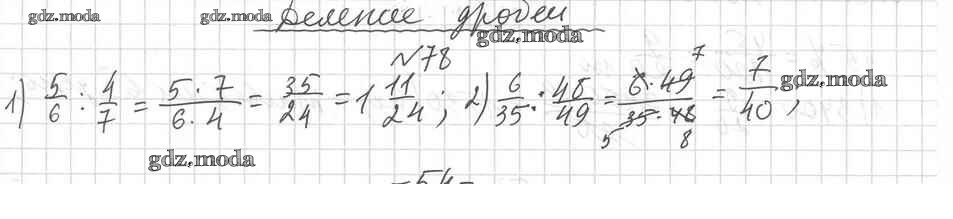 gdz.moda gdz.moda Деление дробей gdz.moda
№78
1) 5/6 : 4/7 = 5·7/6·4 = 35/24 = 1 11/24 ; 2) 6/35 : 48/49 = 6·49/35·48 = 7/40 ; gdz.moda
7
5 8
gdz.moda